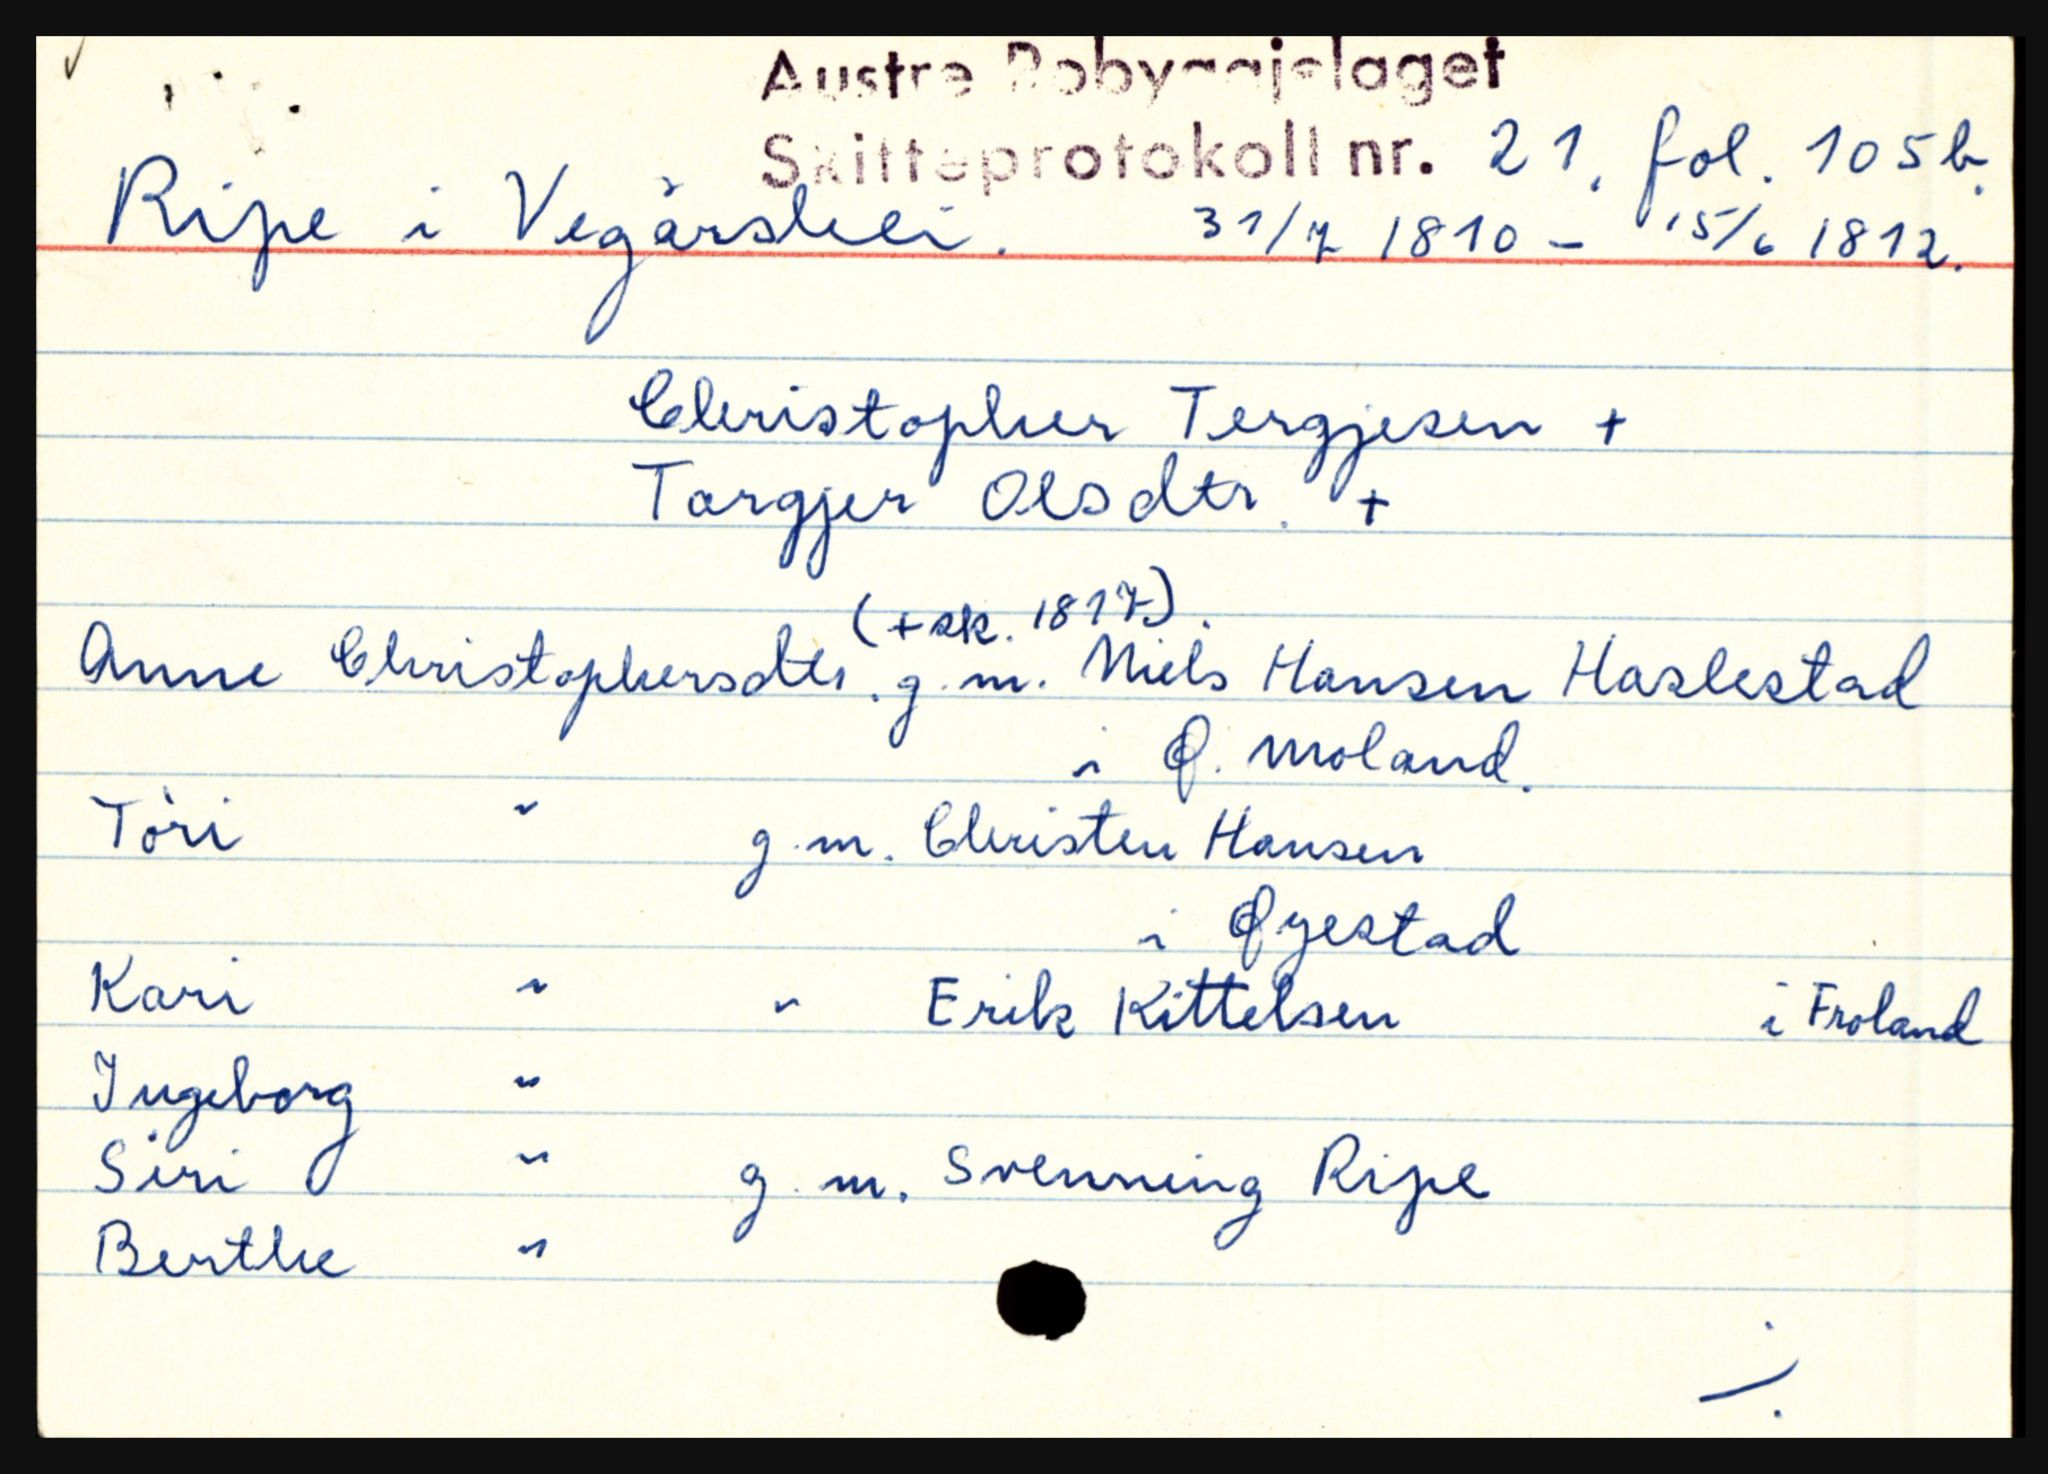 Austre Robyggjelaget
Skifteprotokoll nr. 21. fol. 105b.
Ripe i Vegårshei. 31/7 1810 - 15/6 1812.
Christopher Tergjesen +
Targjer Olsdtr. +
(+ sk. 1817).
Anne Christophersdtr. g.m. Niels Hansen Haslestad
i Ø. Moland.
Tòri " g.m. Christen Hansen
i Øyestad
Kari " " Erik Kittelsen i Froland
Ingeborg "
Siri " g.m. Svenning Ripe
Berthe "